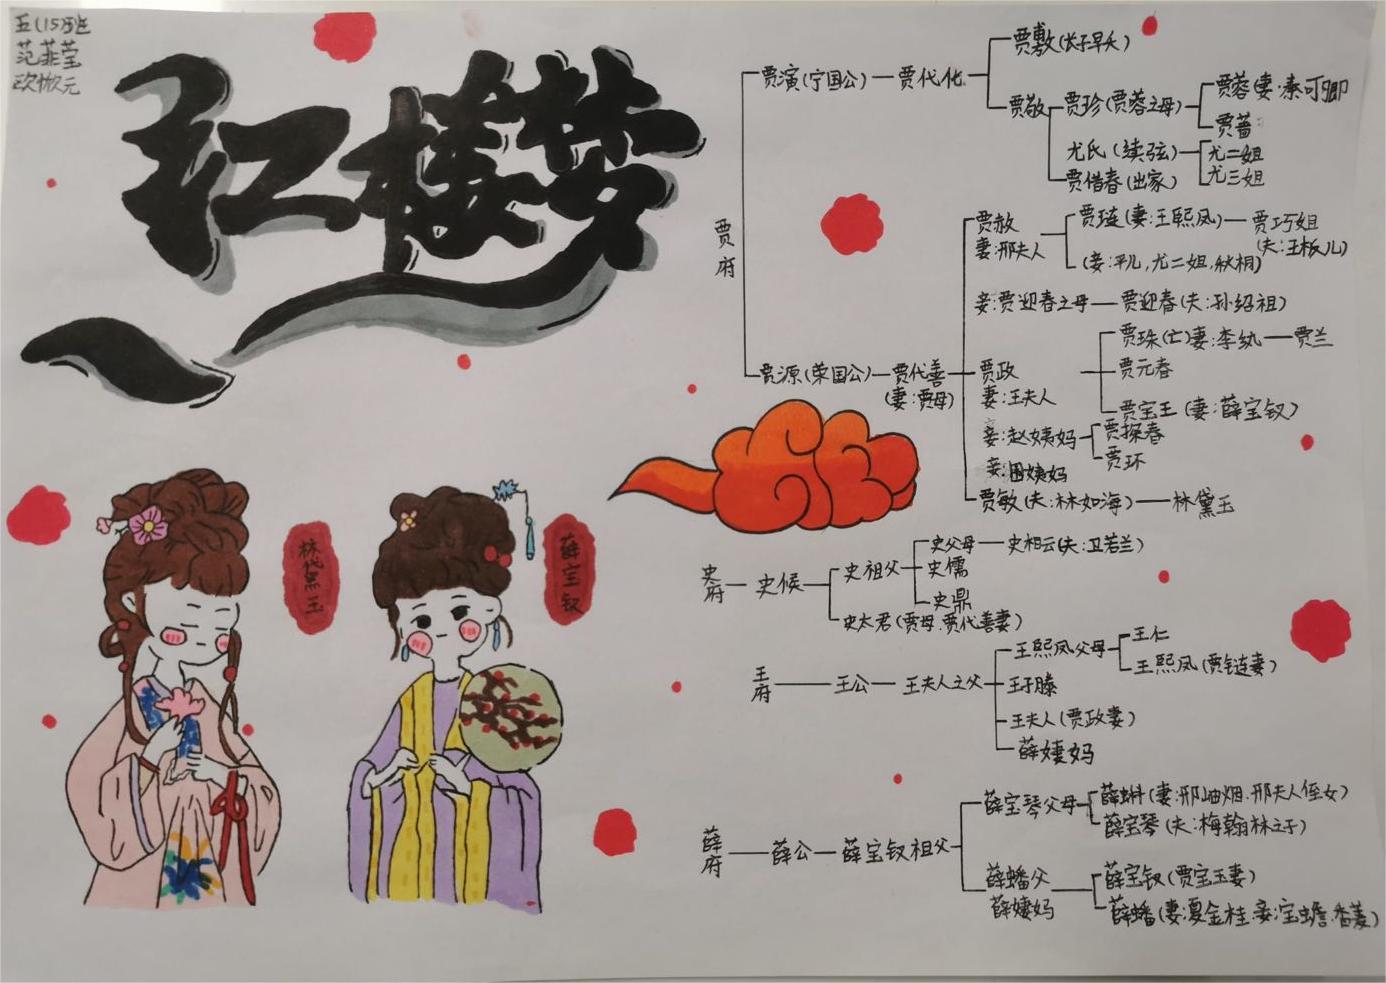 五(15)班
范菲莹
欧
红楼梦
林黛玉
薛宝钗
贾府
贾演(宁国公)
贾代化
贾敷(长子早夭)
贾敬
贾珍(贾蓉之母)
贾蓉(妻:秦可卿
贾蔷:
尤氏(续弦)
尤二姐
尤三姐
贾惜春(出家)
贾源(荣国公)
贾代善
(妻:贾母)
贾赦
妻:邢夫人
贾琏(妻:王熙凤)
贾巧姐
(夫:王板儿)
(妾:平儿,尤二姐,秋桐)
妾:贾迎春之母
贾迎春(夫:孙绍祖)
贾政
妻:王夫人
贾珠(亡)妻:李纨
贾兰
贾元春
贾宝玉(妻:薛宝钗)
妾:赵姨妈
贾探春
贾环
妾:周姨妈
贾敏(夫:林如海)
林黛玉
史府
史候
史祖父
史父母
史相云(夫:卫若兰)
史儒
史鼎
史太君(贾母.贾代善妻)
王府
王公
王夫人之父
王熙凤父母
王仁
王熙凤(贾链妻)
王子滕
王夫人(贾政妻)
薛姨妈
薛府
薛公
薛宝钗祖父
薛宝琴父母
薛蝌(妻:邢岫烟.邢夫人侄女)
薛宝琴(夫:梅翰林之子)
薛蟠父
薛姨妈
薛宝钗(贾宝玉妻)
薛蟠(妻:夏金桂.妾:宝蟾.香菱)